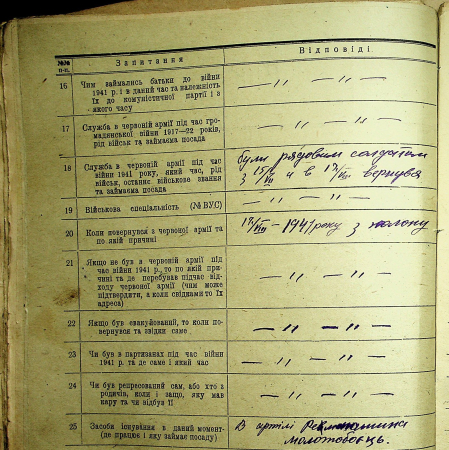 №№ п-п. Запитання Відповіді
16 Чим займались батьки до війни
1941 р. і в даний час та належність
їх до комуністичної партії і з
якого часу
— „ — „ —
17 Служба в червоній армії під час гро-
мадянської війни 1917—22 років,
рід військ та займаєма посада
— „ — „ —
18 Служба в червоній армії під час
війни 1941 року, який час, рід
військ, останнє військове звання
та займаєма посада
був рядовим солдатом
з 15/VII і в 17/VIII вернувся
19 Військова спеціальність (№ ВУС)
— „ — „ —
20 Коли повернувся з червоної армії та
по якій причині
17/VIII — 1941 року з полону
21 Якщо не був в червоній армії під
час війни 1941 р., то по якій при-
чині та де перебував підчас від-
ходу червоної армії (чим може
підтвердити, а коли свідками то їх
адреса)
— „ — „ —
22 Якщо був евакуйований, то коли по-
вернувся та звідки саме
— „ — „ —
23 Чи був в партизанах під час війни
1941 р. та де саме і який час
— „ — „ —
24 Чи був репресований сам, або хто з
родичів, коли і защо, яку мав
кару та чи відбув її
— „ — „ —
25 Засоби існування в даний момент
(де працює і яку займає посаду)
В артілі
молотобоєць.